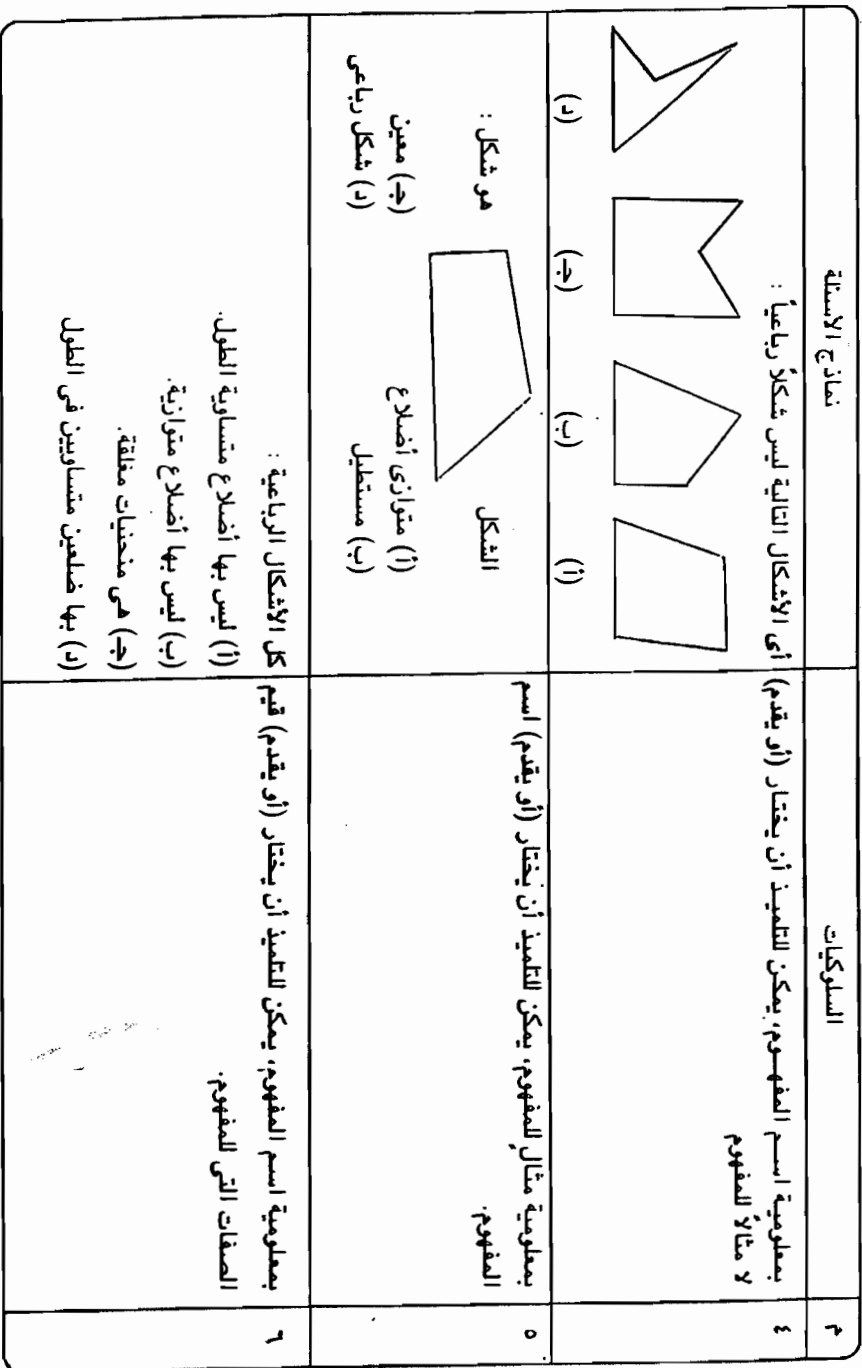 م
السلوكيات
نماذج الأسئلة
٤
بمعلومية اسم المفهوم، يمكن للتلميذ أن يختار (أو يقدم)
لا مثالاً للمفهوم
أى الأشكال التالية ليس شكلاً رباعياً :
(أ)
(ب)
(جـ)
(د)
٥
بمعلومية مثالٍ للمفهوم، يمكن للتلميذ أن يختار (أو يقدم) اسم
المفهوم.
الشكل
هو شكل :
(أ) متوازى أضلاع
(جـ) معين
(ب) مستطيل
(د) شكل رباعى
٦
بمعلومية اسم المفهوم، يمكن للتلميذ أن يختار (أو يقدم) قيم
الصفات التى للمفهوم.
كل الأشكال الرباعية :
(أ) ليس بها أضلاع متساوية الطول.
(ب) ليس بها أضلاع متوازية.
(جـ) هى منحنيات مغلقة.
(د) بها ضلعين متساويين فى الطول